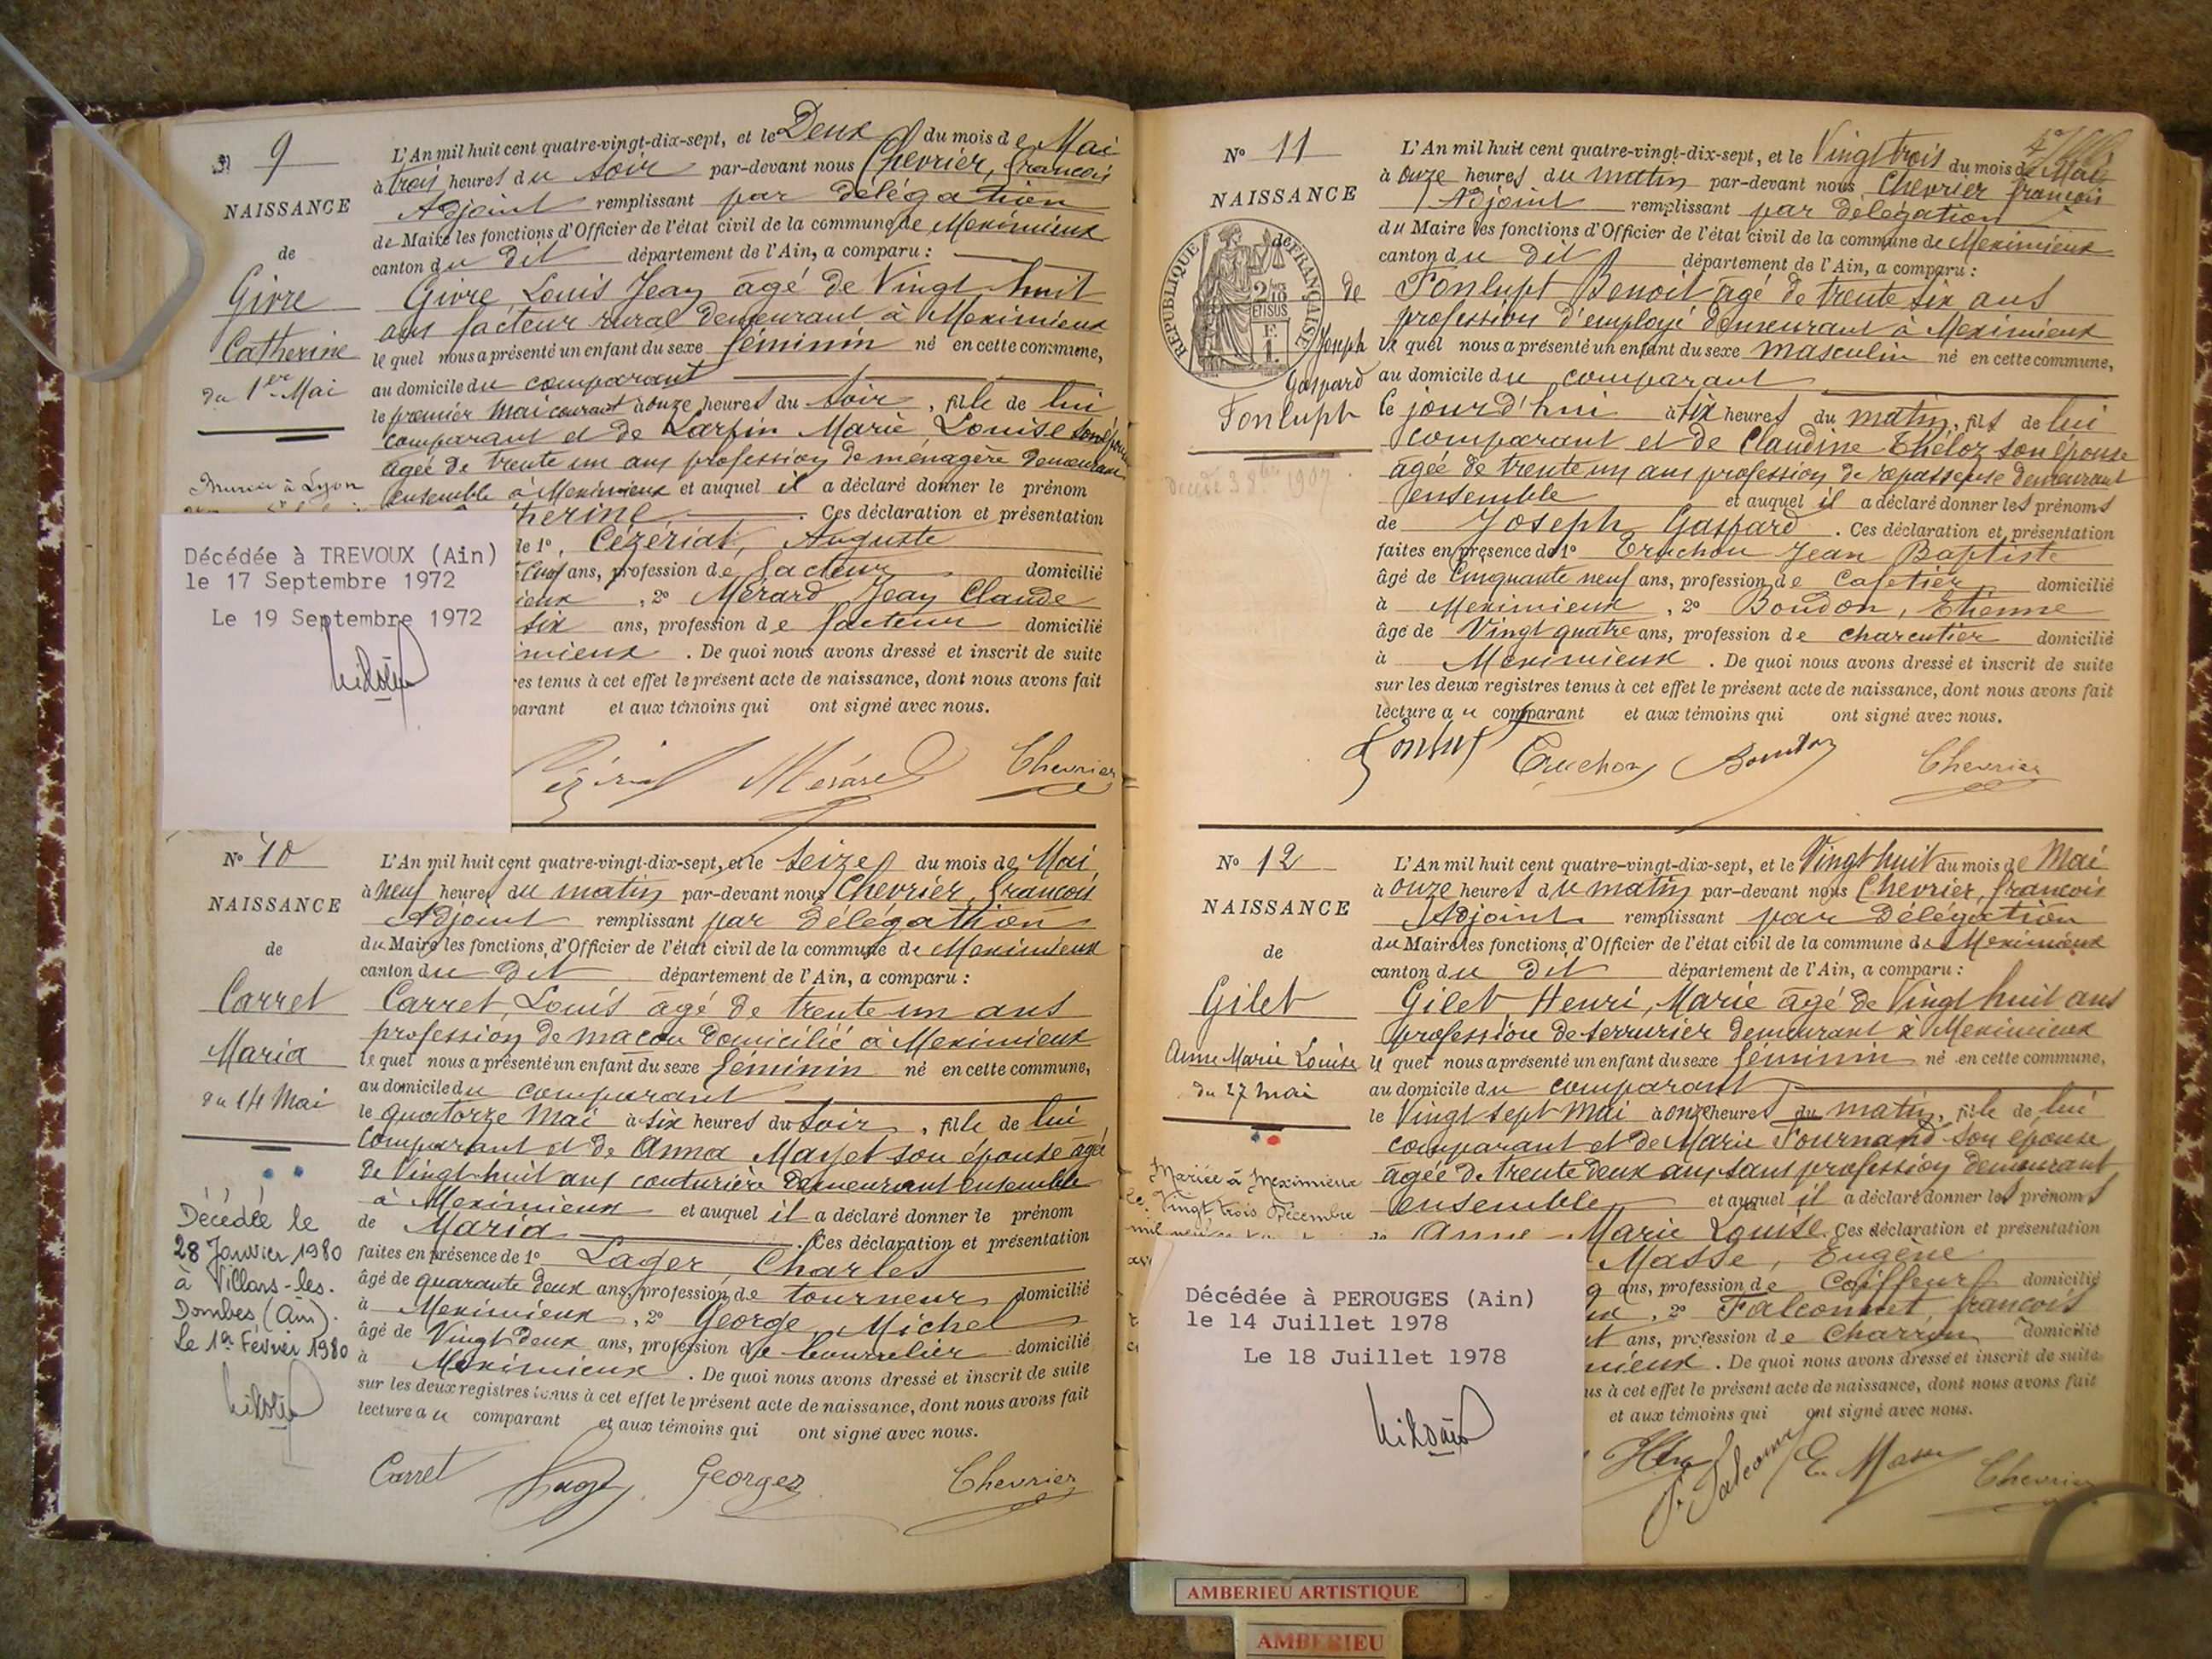 9
NAISSANCE
de
Givre
Catherine
du 1er Mai
L'An mil huit cent quatre-vingt-dix-sept, et le Deux du mois de Mai
à trois heures du soir par-devant nous Chevrier, François
Adjoint remplissant par délégation
de Maire les fonctions d'Officier de l'état civil de la commune de Meximieux
canton du dit département de l'Ain, a comparu :
Givre Louis Jean âgé de Vingt huit
ans facteur rural demeurant à Meximieux
lequel nous a présenté un enfant du sexe féminin né en cette commune,
au domicile du comparant
le premier Mai courant à onze heures du soir, fille de lui
comparant et de Larfin Marie Louise son épouse
agée de trente un ans profession de ménagère demeurant
ensemble à Meximieux et auquel il a déclaré donner le prénom
therine. Ces déclaration et présentation
de 1º, Cézériat, Auguste
ans, profession de facteur domicilié
ieux, 2º Mérard Jean Claude
six ans, profession de facteur domicilié
imieux. De quoi nous avons dressé et inscrit de suite
res tenus à cet effet le présent acte de naissance, dont nous avons fait
parant et aux témoins qui ont signé avec nous.
Mérard Chevrier
à Lyon
Décédée à TREVOUX (Ain)
le 17 Septembre 1972
Le 19 Septembre 1972
Nº 10
NAISSANCE
de
Carret
Maria
du 14 Mai
Décédée le
28 Janvier 1980
à Villars-les-
Dombes (Ain).
Le 1er Février 1980
L'An mil huit cent quatre-vingt-dix-sept, et le seize du mois de Mai
à neuf heures du matin par-devant nous Chevrier, François
Adjoint remplissant par délégathion
du Maire les fonctions d'Officier de l'état civil de la commune de Meximieux
canton du dit département de l'Ain, a comparu :
Carret, Louis âgé de trente un ans
profession de macon domicilié à Meximieux
lequel nous a présenté un enfant du sexe féminin né en cette commune,
au domicile du comparant
le quatorze Mai à six heures du soir, fille de lui
comparant et de Anna Mayet son épouse agée
de Vingt huit ans couturière demeurant ensemble
à Meximieux et auquel il a déclaré donner le prénom
de Maria. Ces déclaration et présentation
faites en présence de 1º Lager, Charles
âgé de quarante deux ans, profession de tourneur domicilié
à Meximieux, 2º George Michel
âgé de Vingt Deux ans, profession de bourrelier domicilié
à Meximieux. De quoi nous avons dressé et inscrit de suite
sur les deux registres tenus à cet effet le présent acte de naissance, dont nous avons fait
lecture au comparant et aux témoins qui ont signé avec nous.
Carret Georges Chevrier
Nº 11
NAISSANCE
RÉPUBLIQUE FRANÇAISE
de
Joseph
Gaspard
Fonlupt
L'An mil huit cent quatre-vingt-dix-sept, et le Vingt trois du mois de Mai
à onze heures du matin par-devant nous Chevrier françois
Adjoint remplissant par délégation
du Maire les fonctions d'Officier de l'état civil de la commune de Meximieux
canton du dit département de l'Ain, a comparu :
Fonlupt Benoit âgé de trente six ans
profession d'employé demeurant à Meximieux
lequel nous a présenté un enfant du sexe masculin né en cette commune,
au domicile du comparant
ce jourd'hui à six heures du matin, fils de lui
comparant et de Claudine Théloz son épouse
agée de trente un ans profession de repasseuse demeurant
ensemble et auquel il a déclaré donner les prénoms
de Joseph Gaspard. Ces déclaration et présentation
faites en présence de 1º Truchon Jean Baptiste
âgé de Cinquante neuf ans, profession de Cafetier domicilié
à Meximieux, 2º Boudon, Etienne
âgé de Vingt quatre ans, profession de charcutier domicilié
à Meximieux. De quoi nous avons dressé et inscrit de suite
sur les deux registres tenus à cet effet le présent acte de naissance, dont nous avons fait
lecture au comparant et aux témoins qui ont signé avec nous.
Truchon Boudon Chevrier
Nº 12
NAISSANCE
de
Gilet
Anne Marie Louise
du 27 mai
Mariée à Meximieux
le Vingt trois Décembre
L'An mil huit cent quatre-vingt-dix-sept, et le Vingt huit du mois de Mai
à onze heures du matin par-devant nous Chevrier, françois
Adjoint remplissant par délégation
du Maire les fonctions d'Officier de l'état civil de la commune de Meximieux
canton du dit département de l'Ain, a comparu :
Gilet Henri, Marie âgé de Vingt huit ans
profession de serrurier demeurant à Meximieux
lequel nous a présenté un enfant du sexe féminin né en cette commune,
au domicile du comparant
le Vingt sept Mai à onze heures du matin, fille de lui
comparant et de Marie Fournand son épouse
agée de trente deux ans sans profession demeurant
ensemble et auquel il a déclaré donner les prénoms
Anne Marie Louise. Ces déclaration et présentation
Masse, Eugène
ans, profession de Coiffeur domicilié
ux, 2º Falconnet, françois
ans, profession de Charron domicilié
mieux. De quoi nous avons dressé et inscrit de suite
us à cet effet le présent acte de naissance, dont nous avons fait
et aux témoins qui ont signé avec nous.
E. Masse Chevrier
Décédée à PEROUGES (Ain)
le 14 Juillet 1978
Le 18 Juillet 1978
AMBERIEU ARTISTIQUE
AMBERIEU